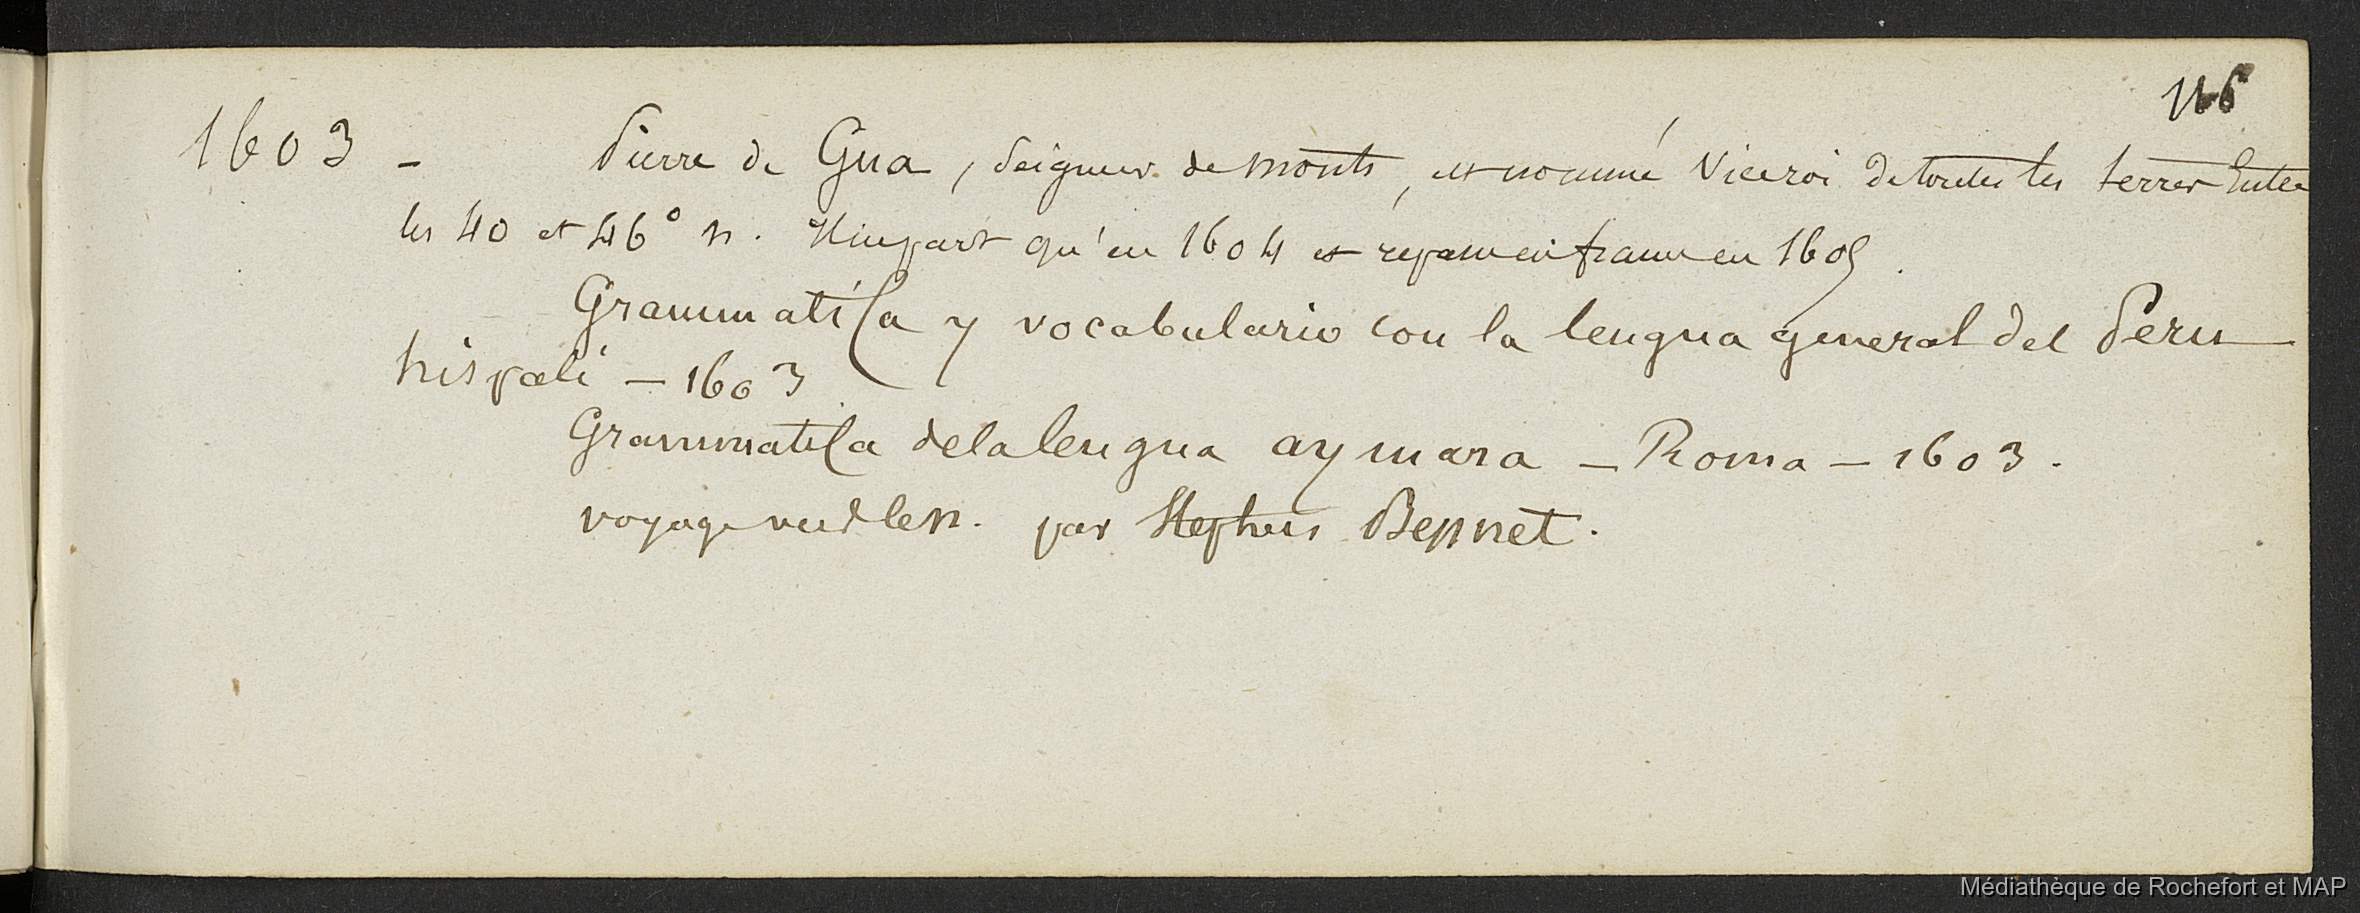 116
1603 - Pierre de Gua, Seigneur de monts, est nommé Viceroi de toutes les terres Entre
les 40 et 46° n. Il ne part qu'en 1604 et repasse en france en 1605.
Grammatica y vocabulario con la lengua general del Peru —
hispali — 1603
Grammatica de la lengua aymara — Roma — 1603.
voyage vers le n. par Stephens Bennet.
Médiathèque de Rochefort et MAP